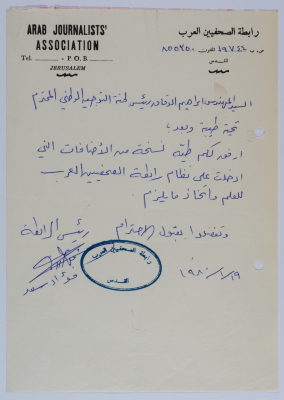 ARAB JOURNALISTS'
ASSOCIATION
Tel. P.O.B.
JERUSALEM
رابطة الصحفيين العرب
ص.ب ١٩٧٤٤ تلفون ٨٥٥٢٥٠
القدس
السيد المهندس ابراهيم الدقاق رئيس لجنة التوجيه الوطني المحترم
تحية طيبة وبعد،
ارفق لكم طيّه نسخة من الأضافات التي
ادخلت على نظام رابطة الصحفيين العرب
للعلم واتخاذ ما يلزم.
وتفضلوا بقبول الاحترام
رئيس الرابطة
رابطة الصحفيين العرب
القدس
١٩٨٠/١/١٩